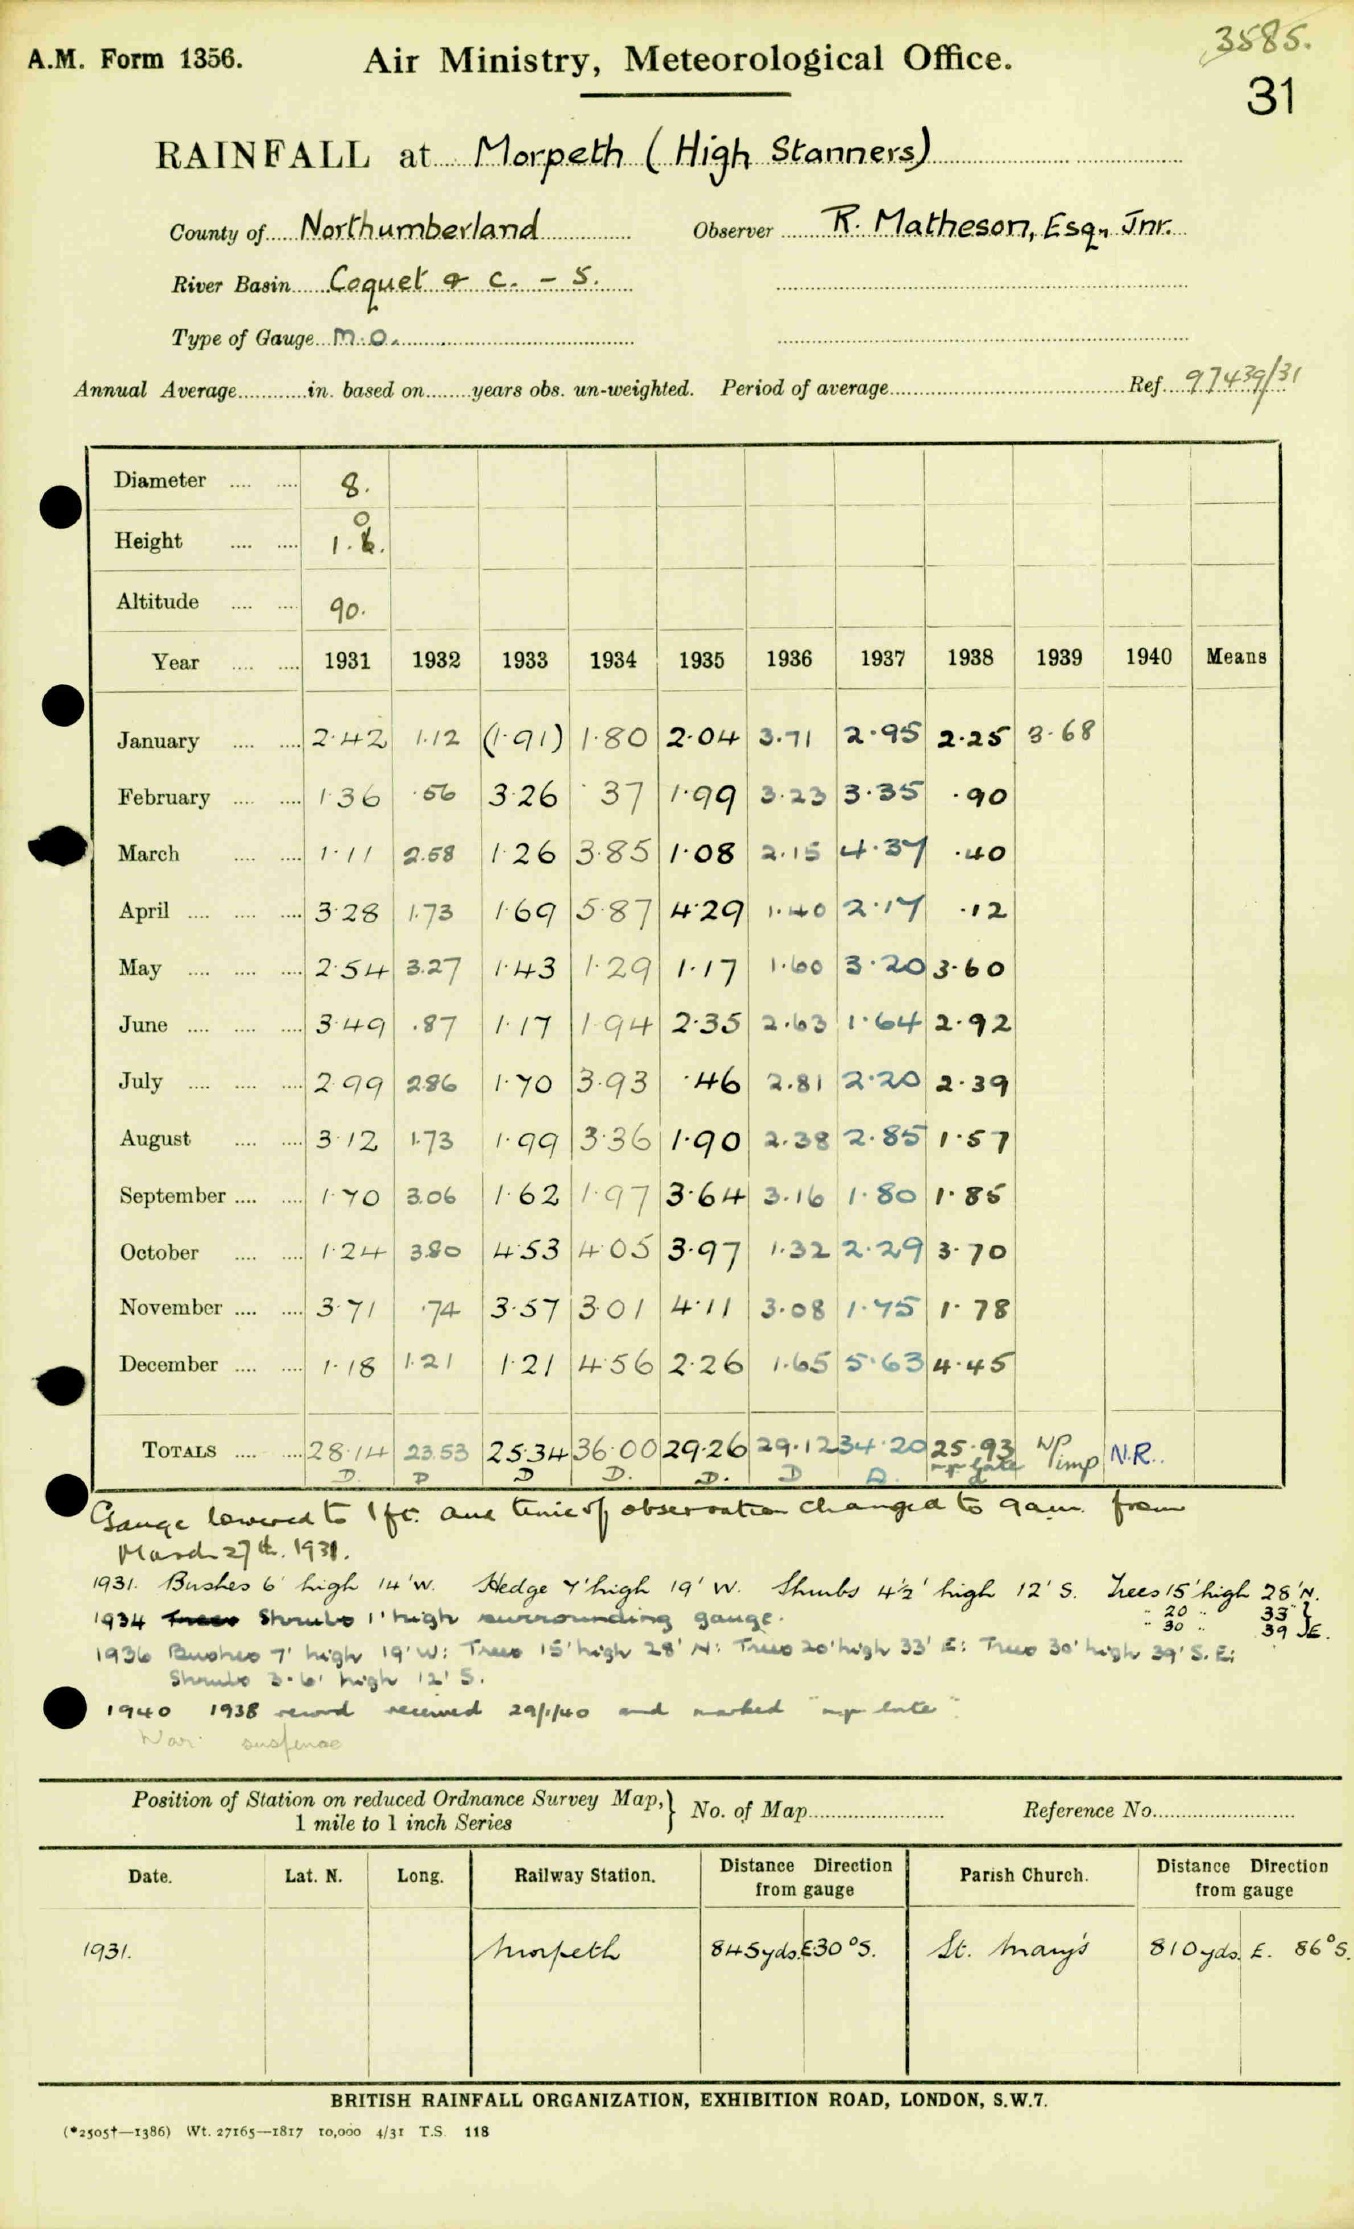 3585.
A.M. Form 1356. Air Ministry, Meteorological Office.
31
RAINFALL at Morpeth (High Stanners)
County of Northumberland Observer R. Matheson, Esq., Jnr.
River Basin Coquet & c. - 5.
Type of Gauge M.O.
Annual Average in. based on years obs. un-weighted. Period of average Ref. 97439/31
Diameter 8.
Height 1.0
Altitude 90.
Year 1931 1932 1933 1934 1935 1936 1937 1938 1939 1940 Means
January 2.42 1.12 (1.91) 1.80 2.04 3.71 2.95 2.25 3.68
February 1.36 .56 3.26 .37 1.99 3.23 3.35 .90
March 1.11 2.58 1.26 3.85 1.08 2.15 4.37 .40
April 3.28 1.73 1.69 5.87 4.29 1.40 2.17 .12
May 2.54 3.27 1.43 1.29 1.17 1.60 3.20 3.60
June 3.49 .87 1.17 1.94 2.35 2.63 1.64 2.92
July 2.99 2.86 1.70 3.93 .46 2.81 2.20 2.39
August 3.12 1.73 1.99 3.36 1.90 2.38 2.85 1.57
September 1.70 3.06 1.62 1.97 3.64 3.16 1.80 1.85
October 1.24 3.80 4.53 4.05 3.97 1.32 2.29 3.70
November 3.71 .74 3.57 3.01 4.11 3.08 1.75 1.78
December 1.18 1.21 1.21 4.56 2.26 1.65 5.63 4.45
TOTALS 28.14 23.53 25.34 36.00 29.26 29.12 34.20 25.93 NP imp N.R.
D. D D D. D. D D. np late
Gauge lowered to 1ft. and time of observation changed to 9am. from
March 27th. 1931.
1931. Bushes 6' high 14' W. Hedge 7' high 19' W. Shrubs 4½' high 12' S. Trees 15' high 28' N.
" 20 " 33' }
" 30 " 39 } E.
1934 Shrubs 1' high surrounding gauge.
1936 Bushes 7' high 19' W: Trees 15' high 28' N: Trees 20' high 33' E: Trees 30' high 39' S.E:
Shrubs 3-6' high 12' S.
1940 1938 record received 29/1/40 and marked "np late".
War suspense
Position of Station on reduced Ordnance Survey Map, } No. of Map Reference No.
1 mile to 1 inch Series
Date. Lat. N. Long. Railway Station. Distance Direction from gauge Parish Church. Distance Direction from gauge
1931. Morpeth 845yds. E30°S. St. Mary's 810yds. E. 86°S.
BRITISH RAINFALL ORGANIZATION, EXHIBITION ROAD, LONDON, S.W.7.
(*2505†—1386) Wt. 27165—1817 10,000 4/31 T.S. 118